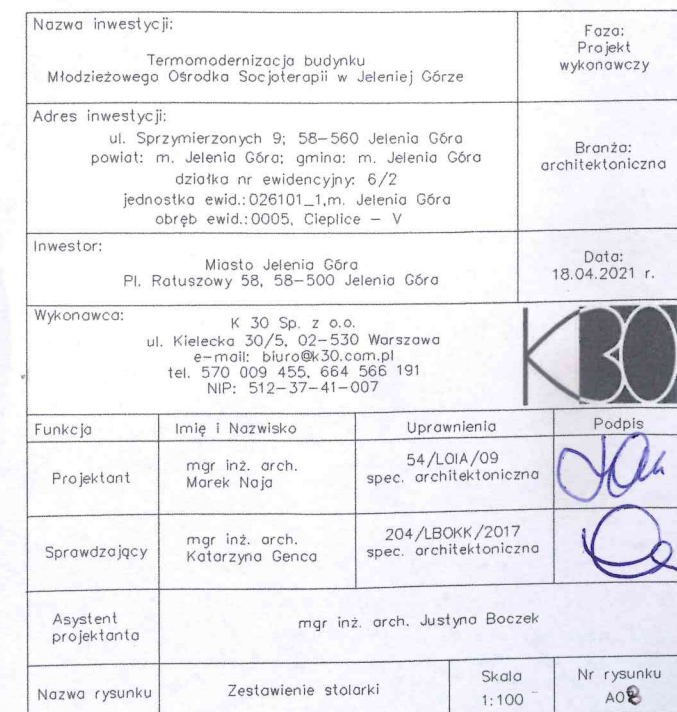 Nazwa inwestycji:
Termomodernizacja budynku
Młodzieżowego Ośrodka Socjoterapii w Jeleniej Górze
Faza:
Projekt
wykonawczy
Adres inwestycji:
ul. Sprzymierzonych 9; 58-560 Jelenia Góra
powiat: m. Jelenia Góra; gmina: m. Jelenia Góra
działka nr ewidencyjny: 6/2
jednostka ewid.:026101_1,m. Jelenia Góra
obręb ewid.:0005, Cieplice - V
Branża:
architektoniczna
Inwestor:
Miasto Jelenia Góra
Pl. Ratuszowy 58, 58-500 Jelenia Góra
Data:
18.04.2021 r.
Wykonawca:
K 30 Sp. z o.o.
ul. Kielecka 30/5, 02-530 Warszawa
e-mail: biuro@k30.com.pl
tel. 570 009 455, 664 566 191
NIP: 512-37-41-007
K30
Funkcja Imię i Nazwisko Uprawnienia Podpis
Projektant
mgr inż. arch.
Marek Naja
54/LOIA/09
spec. architektoniczna
Sprawdzający
mgr inż. arch.
Katarzyna Genca
204/LBOKK/2017
spec. architektoniczna
Asystent
projektanta
mgr inż. arch. Justyna Boczek
Nazwa rysunku
Zestawienie stolarki
Skala
1:100
Nr rysunku